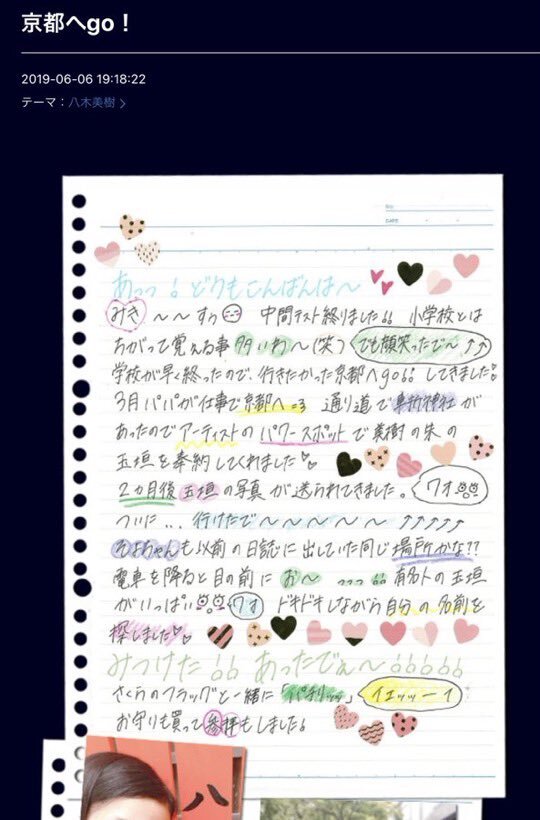 京都へgo！
2019-06-06 19:18:22
テーマ：八木美樹 >
No.
DATE
あっっ！どうもこんばんは〜
みき〜〜すっ 中間テスト終りました!! 小学校とは
ちがって覚える事多いわ〜(笑) でも頑張ったでへ↑↑
学校が早く終ったので、行きたかった京都へgo!! してきました!
3月パパが仕事で京都へ=3 通り道で車折神社が
あったのでアーティストのパワースポットで美樹の朱の
玉垣を奉納してくれました
2カ月後玉垣の写真が送られてきました。ワオ
ついに...行けたで〜〜〜〜〜〜↑↑↑↑↑
そよちゃんも以前の日誌に出していた同じ場所かな??
電車を降ると目の前に お〜 !! 有名人の玉垣
がいっぱい ワオ ドキドキしながら自分の名前を
探しました
みつけた!! あったでぇ〜!!!!!
さくらのフラッグと一緒に「パチリッッ」イエッッーイ
お守りも買って参拝もしました!
八